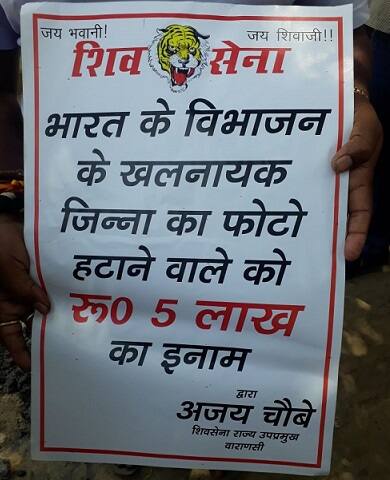 जय भवानी! जय शिवाजी!!
शिव सेना
भारत के विभाजन
के खलनायक
जिन्ना का फोटो
हटाने वाले को
रू0 5 लाख
का इनाम
द्वारा
अजय चौबे
शिवसेना राज्य उपप्रमुख
वाराणसी